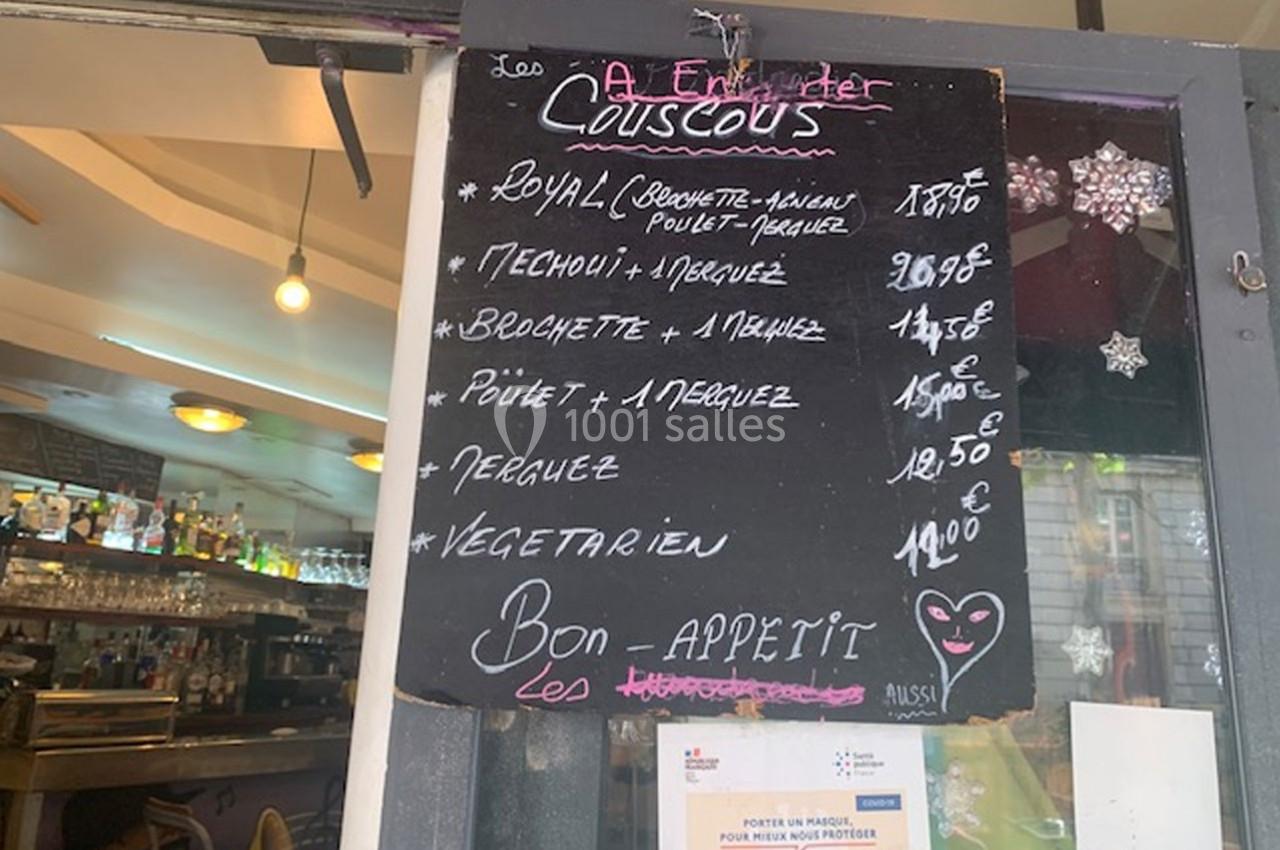 Les
A Emporter
Couscous
* ROYAL (BROCHETTE-AGNEAU 18,90€
POULET-MERGUEZ)
* MECHOUI + 1 MERGUEZ
* BROCHETTE + 1 MERGUEZ
* POÜLET + 1 MERGUEZ
* MERGUEZ 12,50€
* VEGETARIEN
Bon - APPETIT
Les
AUSSI
1001 salles
RÉPUBLIQUE
FRANÇAISE
Santé
publique
France
COVID-19
PORTER UN MASQUE,
POUR MIEUX NOUS PROTÉGER